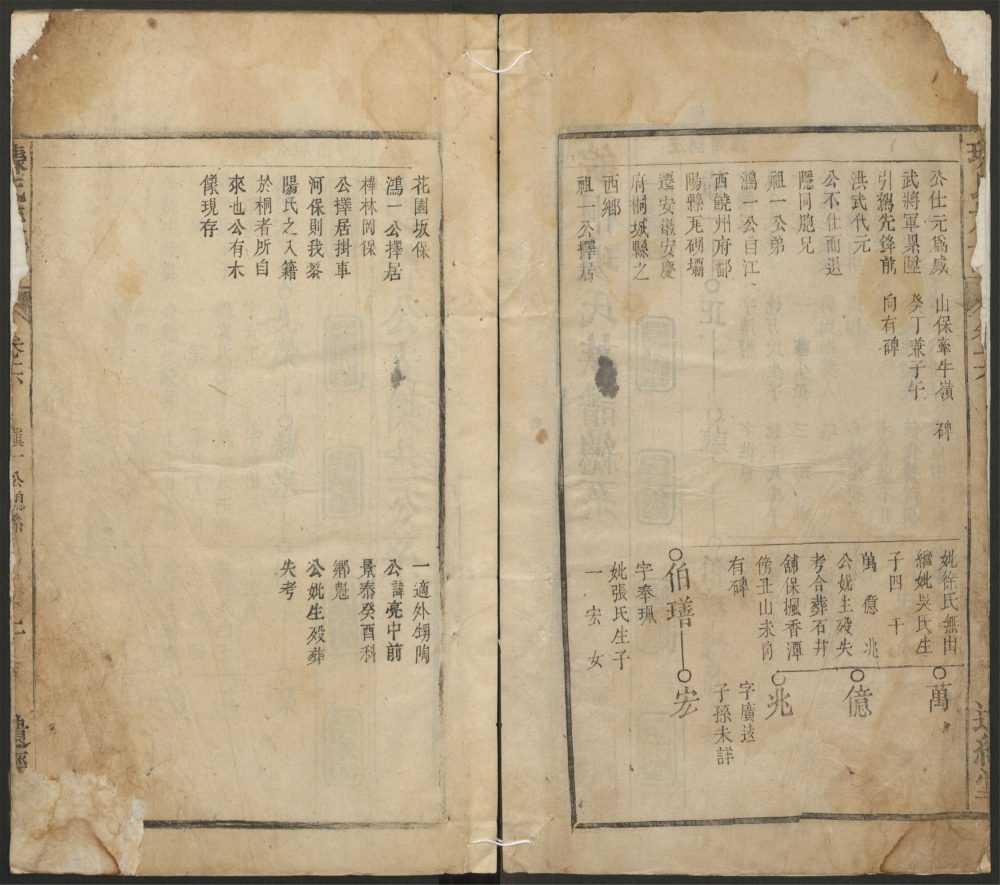 公仕元為威
武將軍果陞
引禤先鋒前
洪武代元
公不仕而返
隱同胞兄
祖一公弟
鴻一公自江
西饒州府鄱
陽縣瓦砌壩
遷安徽安慶
府桐城縣之
西鄉
祖一公擇居
山保牽牛嶺
癸丁兼子午
向有碑
碑
妣徐氏無出
繼妣吳氏生
子四 干
萬 億 兆
公妣生殁失
考合葬石井
舖保楓香潭
傍丑山未向
有碑
萬
億
兆
字廣遠
子孫未詳
伯璠
宏
字奉珮
妣張氏生子
一 宏 女
花園坂保
鴻一公擇居
樺林岡保
公擇居掛事
河保則我黎
陽氏之入籍
於桐者所自
來也公有木
像現存
一適外甥陶
公諱亮中前
景泰癸酉科
鄉魁
公妣生殁葬
失考
卷之六
公總系
遺經